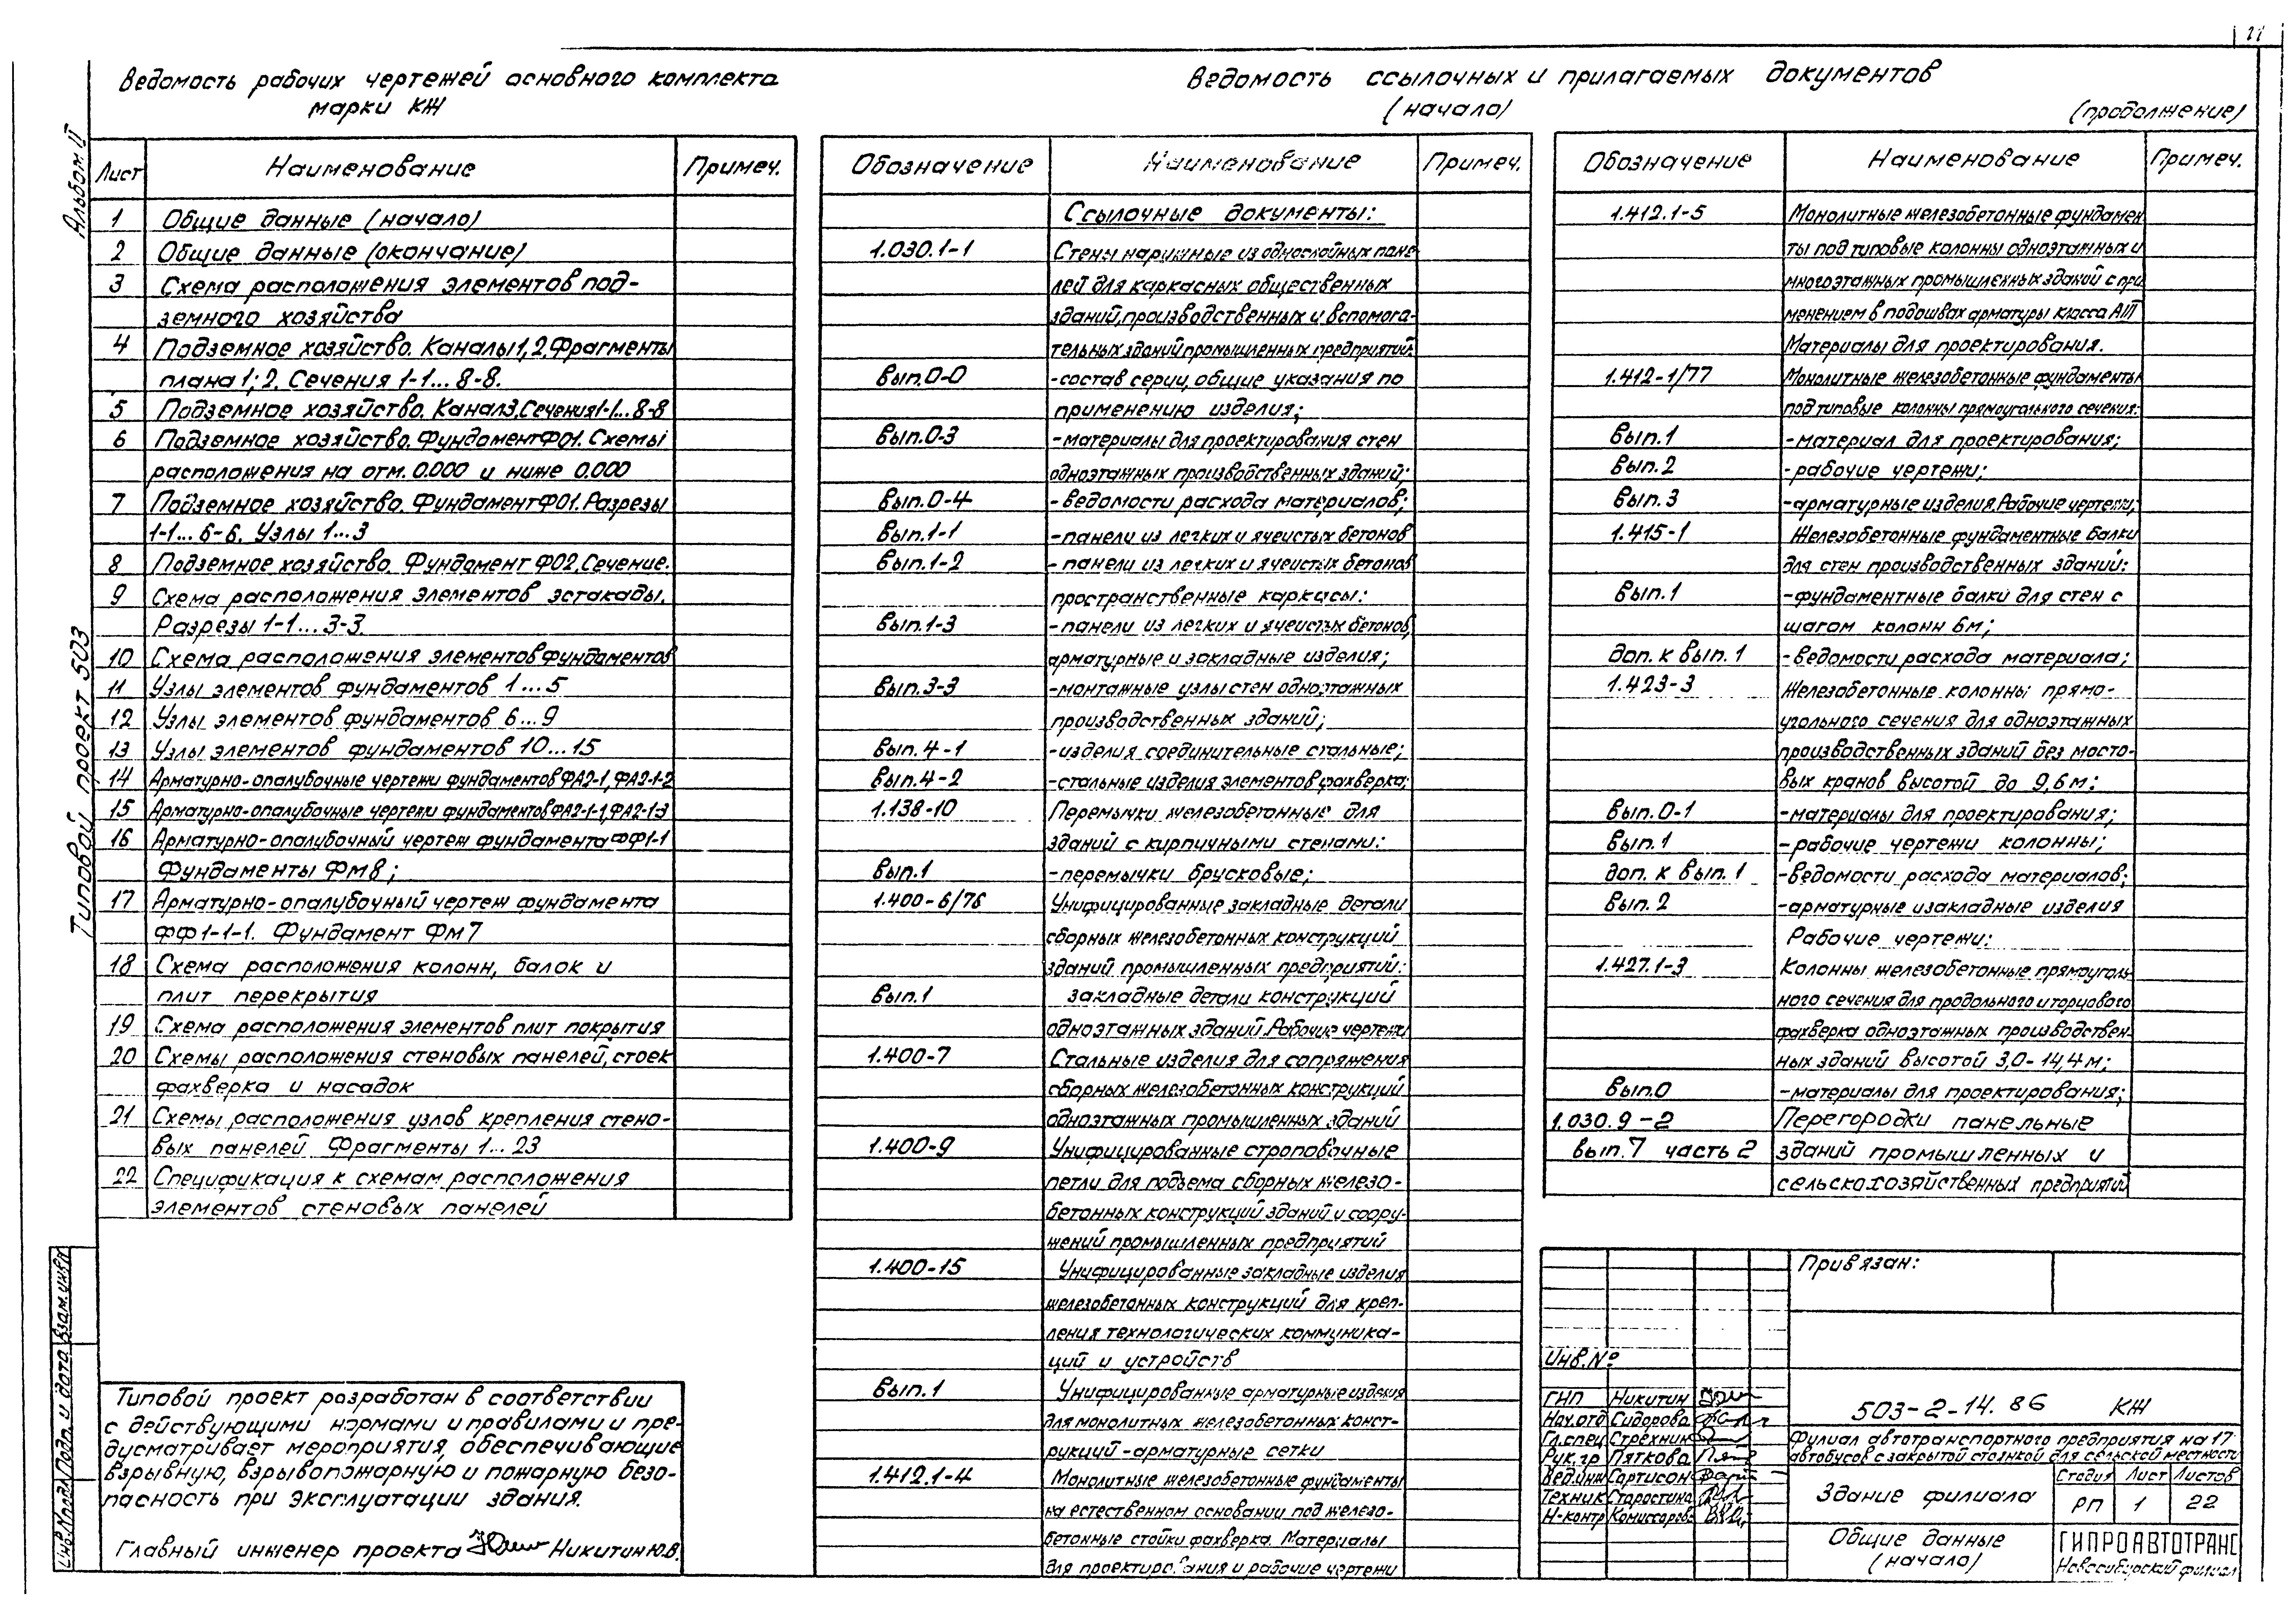 21
Ведомость рабочих чертежей основного комплекта
марки КЖ
Лист Наименование Примеч.
1 Общие данные (начало)
2 Общие данные (окончание)
3 Схема расположения элементов под-
земного хозяйства
4 Подземное хозяйство. Каналы 1, 2. Фрагменты
плана 1; 2. Сечения 1-1... 8-8.
5 Подземное хозяйство. Канал 3. Сечения 1-1... 8-8
6 Подземное хозяйство. Фундамент Ф01. Схемы
расположения на отм. 0.000 и ниже 0.000
7 Подземное хозяйство. Фундамент Ф01. Разрезы
1-1... 6-6. Узлы 1...3
8 Подземное хозяйство. Фундамент Ф02. Сечение.
9 Схема расположения элементов эстакады.
Разрезы 1-1...3-3.
10 Схема расположения элементов фундаментов
11 Узлы элементов фундаментов 1...5
12 Узлы элементов фундаментов 6...9
13 Узлы элементов фундаментов 10...15
14 Арматурно-опалубочные чертежи фундаментов ФА2-1, ФА2-1-2
15 Арматурно-опалубочные чертежи фундаментов ФА2-1-1, ФА2-1-3
16 Арматурно-опалубочный чертеж фундамента ФФ1-1
Фундаменты Фм8;
17 Арматурно-опалубочный чертеж фундамента
ФФ1-1-1. Фундамент Фм7
18 Схема расположения колонн, балок и
плит перекрытия
19 Схема расположения элементов плит покрытия
20 Схемы расположения стеновых панелей, стоек
фахверка и насадок
21 Схемы расположения узлов крепления стено-
вых панелей Фрагменты 1... 23
22 Спецификация к схемам расположения
элементов стеновых панелей
Типовой проект разработан в соответствии
с действующими нормами и правилами и пре-
дусматривает мероприятия, обеспечивающие
взрывную, взрывопожарную и пожарную безо-
пасность при эксплуатации здания.
Главный инженер проекта Никитин Ю.В.
Ведомость ссылочных и прилагаемых документов
(начало)
Обозначение Наименование Примеч.
Ссылочные документы:
1.030.1-1 Стены наружные из однослойных пане
лей для каркасных общественных
зданий, производственных и вспомога-
тельных зданий промышленных предприятий:
Вып.0-0 -состав серии, общие указания по
применению изделия;
Вып.0-3 -материалы для проектирования стен
одноэтажных производственных зданий;
Вып.0-4 -ведомости расхода материалов;
Вып.1-1 -панели из легких и ячеистых бетонов
Вып.1-2 -панели из легких и ячеистых бетонов
пространственные каркасы:
Вып.1-3 -панели из легких и ячеистых бетонов,
арматурные и закладные изделия;
Вып.3-3 -монтажные узлы стен одноэтажных
производственных зданий;
Вып.4-1 -изделия соединительные стальные;
Вып.4-2 -стальные изделия элементов фахверка;
1.138-10 Перемычки железобетонные для
зданий с кирпичными стенами:
Вып.1 -перемычки брусковые;
1.400-6/76 Унифицированные закладные детали
сборных железобетонных конструкций
зданий промышленных предприятий:
Вып.1 закладные детали конструкций
одноэтажных зданий. Рабочие чертежи
1.400-7 Стальные изделия для сопряжения
сборных железобетонных конструкций
одноэтажных промышленных зданий
1.400-9 Унифицированные строповочные
петли для подъема сборных железо-
бетонных конструкций зданий и соору-
жений промышленных предприятий
1.400-15 Унифицированные закладные изделия
железобетонных конструкций для креп-
ления технологических коммуника-
ций и устройств
Вып.1 Унифицированные арматурные изделия
для монолитных железобетонных конст-
рукций-арматурные сетки
1.412.1-4 Монолитные железобетонные фундаменты
на естественном основании под железо-
бетонные стойки фахверка. Материалы
для проектирования и рабочие чертежи
(продолжение)
Обозначение Наименование Примеч.
1.412.1-5 Монолитные железобетонные фундамен
ты под типовые колонны одноэтажных и
многоэтажных промышленных зданий с при
менением в подошвах арматуры класса АIII
Материалы для проектирования.
1.412-1/77 Монолитные железобетонные фундаменты
под типовые колонны прямоугольного сечения:
Вып.1 -материал для проектирования;
Вып.2 -рабочие чертежи;
Вып.3 -арматурные изделия. Рабочие чертежи;
1.415-1 Железобетонные фундаментные балки
для стен производственных зданий:
Вып.1 -фундаментные балки для стен с
шагом колонн 6м;
доп. к вып.1 -ведомости расхода материала;
1.423-3 Железобетонные колонны прямо-
угольного сечения для одноэтажных
производственных зданий без мосто-
вых кранов высотой до 9,6м:
Вып.0-1 -материалы для проектирования;
Вып.1 -рабочие чертежи колонны;
доп. к вып.1 -ведомости расхода материалов;
Вып.2 -арматурные и закладные изделия
Рабочие чертежи:
1.427.1-3 Колонны железобетонные прямоуголь-
ного сечения для продольного и торцового
фахверка одноэтажных производствен-
ных зданий высотой 3,0-14,4м;
Вып.0 -материалы для проектирования;
1.030.9-2 Перегородки панельные
вып.7 часть 2 зданий промышленных и
сельскохозяйственных предприятий
Привязан:
Инв.№
ГИП Никитин
Нач.отд Сидорова
Гл.спец Стрехнин
Рук.гр Пяткова
Вед.инж Сартисон
Техник Старостина
Н-контр Комиссаров
503-2-14.86 КЖ
Филиал автотранспортного предприятия на 17
автобусов с закрытой стоянкой для сельской местности
Здание филиала
Стадия Лист Листов
РП 1 22
Общие данные
(начало)
ГИПРОАВТОТРАНС
Новосибирский филиал
Альбом II
Типовой проект 503
Взам.инв№
Подп. и дата
Инв.№подл